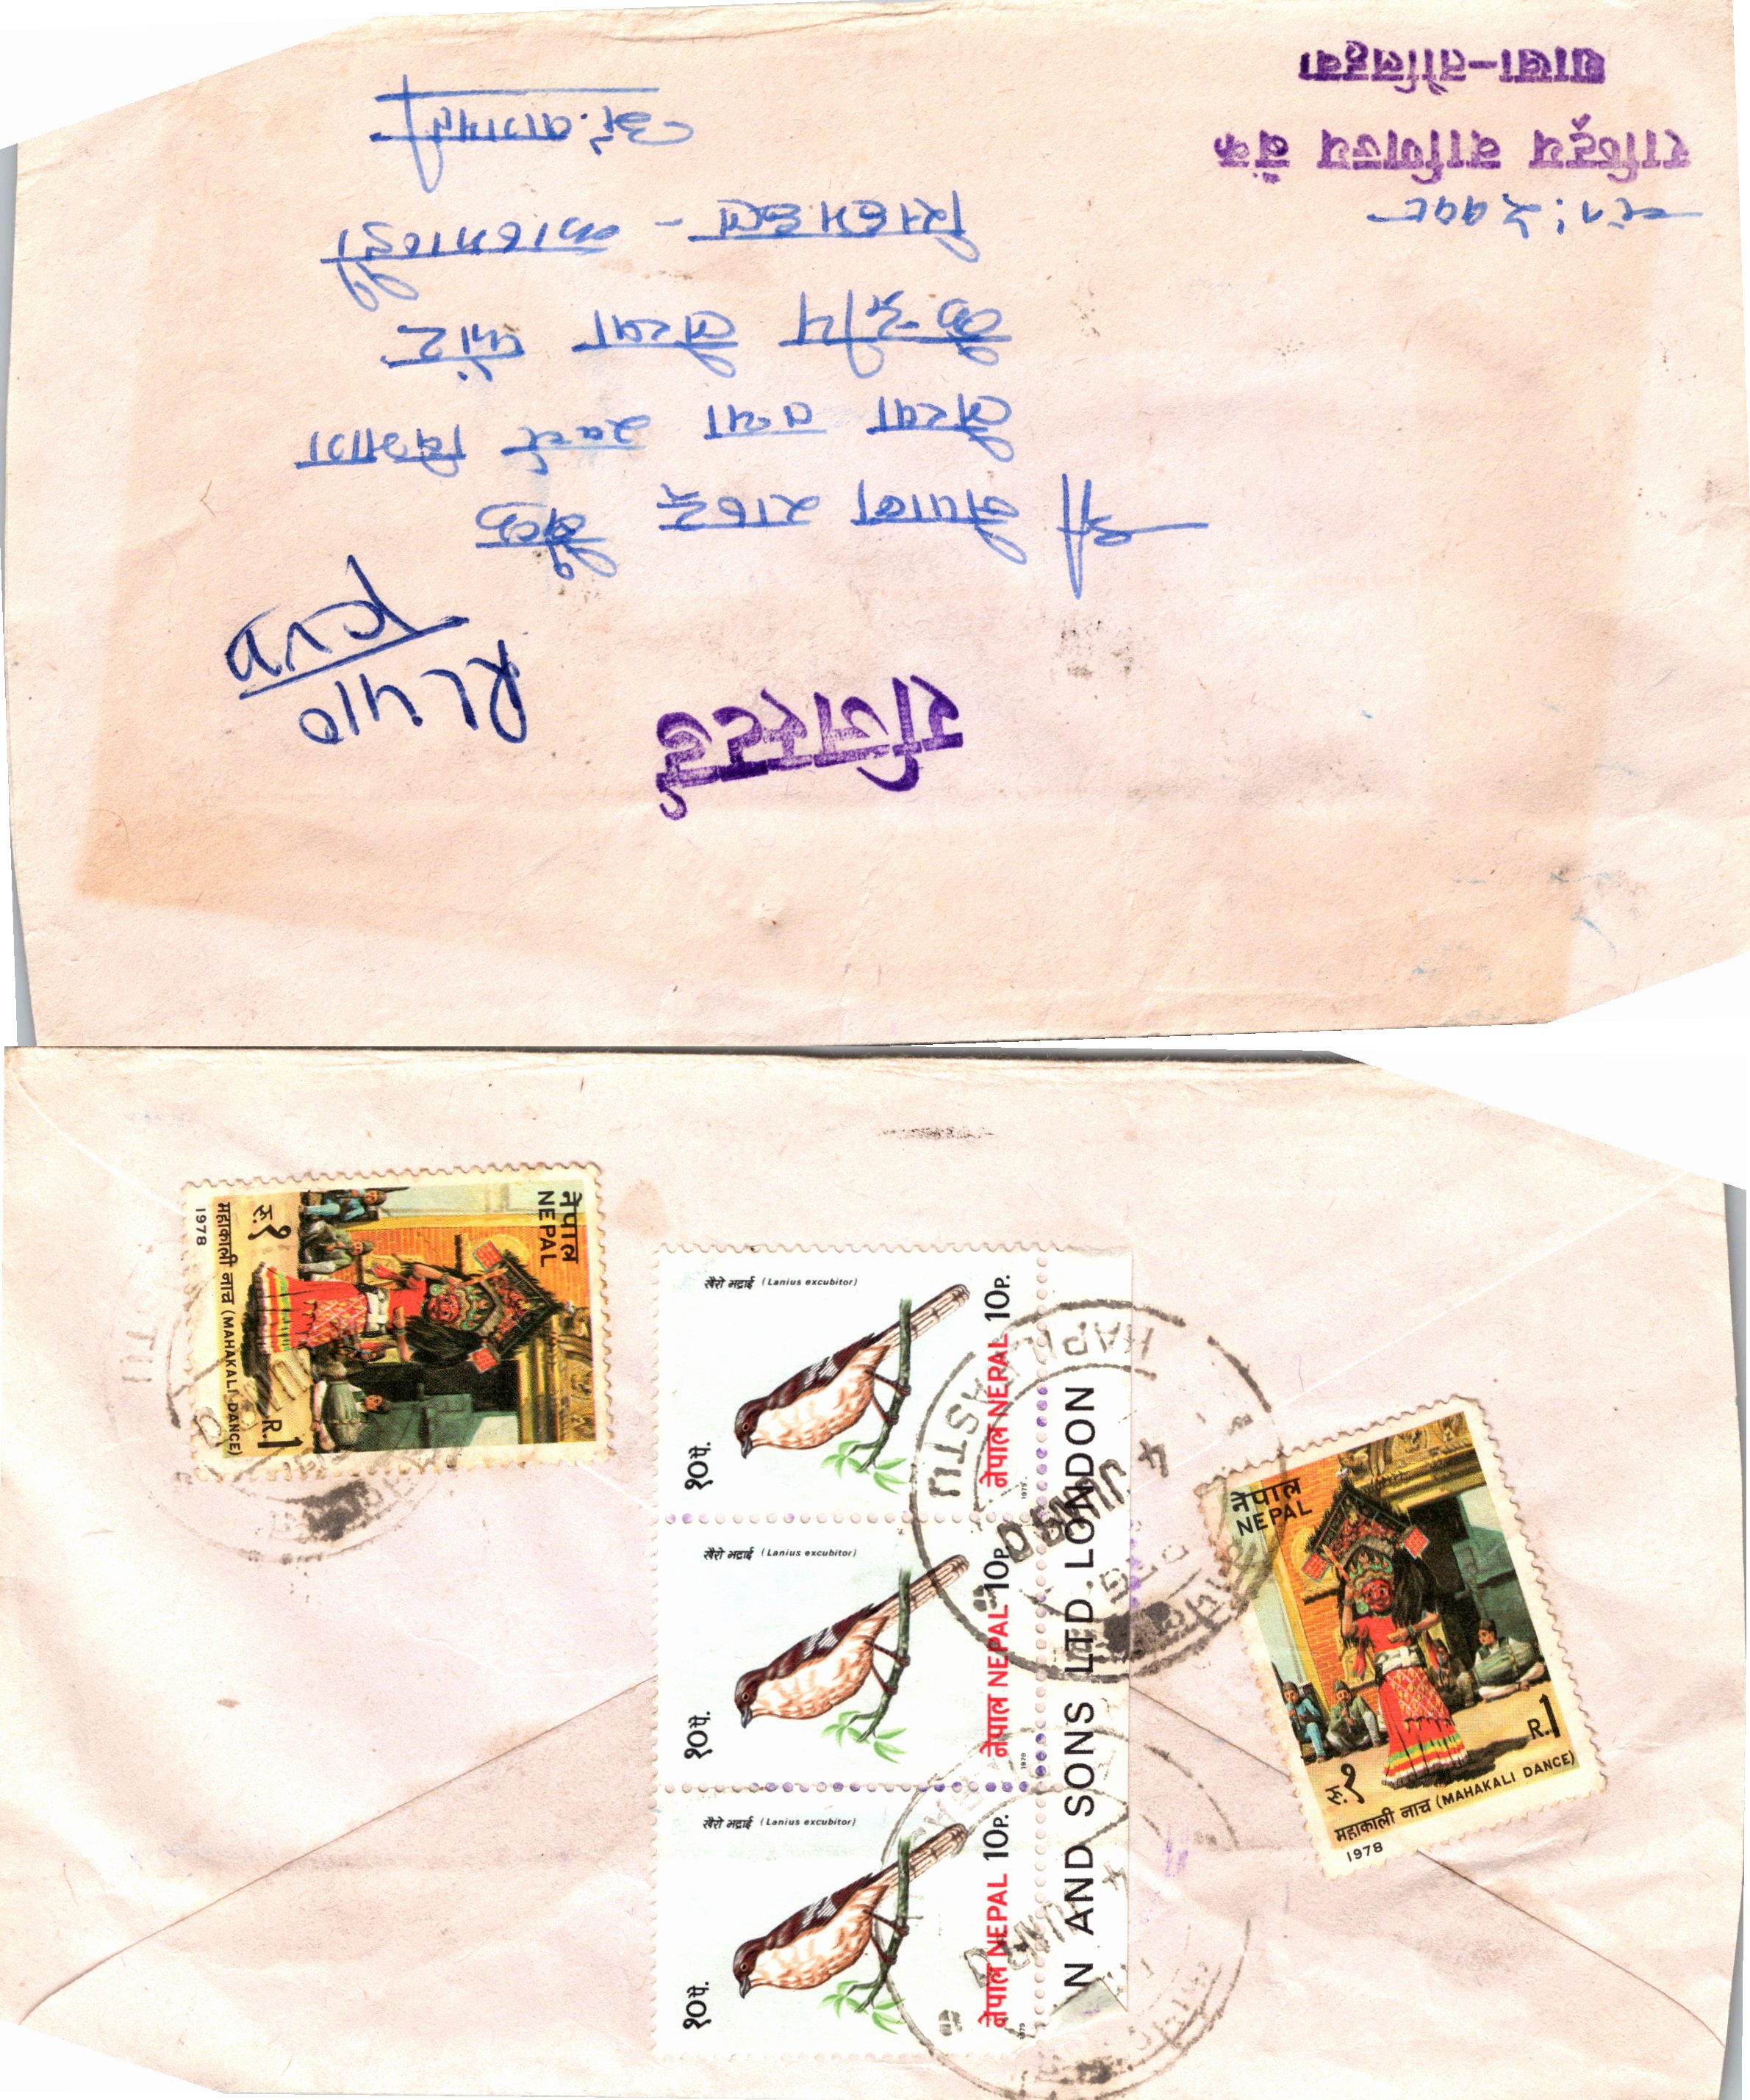 रजिस्टर्ड
श्री नेपाल राष्ट्र बैंक
लेखा तथा खर्च विभाग
केन्द्रीय लेखा फाँट
काठमाडौं
अं. बागमती
राष्ट्रिय वाणिज्य बैंक
शाखा-तौलिहवा
नेपाल
NEPAL
रू.१
R.1
महाकाली नाच (MAHAKALI DANCE)
1978
खैरो भद्राई (Lanius excubitor)
१०पै.
नेपाल NEPAL 10P.
1979
खैरो भद्राई (Lanius excubitor)
१०पै.
नेपाल NEPAL 10P.
1979
खैरो भद्राई (Lanius excubitor)
१०पै.
नेपाल NEPAL 10P.
1979
N AND SONS LTD. LONDON
KAPILVASTU
4
JUN 80
नेपाल
NEPAL
रू.१
R.1
महाकाली नाच (MAHAKALI DANCE)
1978